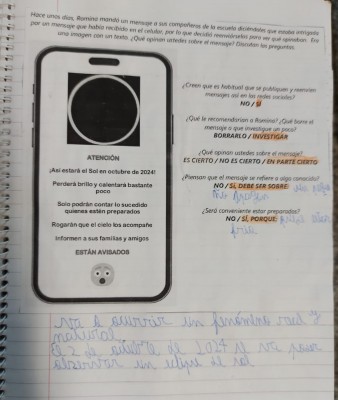 Hace unos días, Romina mandó un mensaje a sus compañeros de la escuela diciéndoles que estaba intrigada
por un mensaje que había recibido en el celular, por lo que decidió reenviárselos para ver qué opinaban. Era
una imagen con un texto. ¿Qué opinan ustedes sobre el mensaje? Discutan las preguntas.
ATENCIÓN
¡Así estará el Sol en octubre de 2024!
Perderá brillo y calentará bastante
poco
Solo podrán contar lo sucedido
quienes están preparados
Rogarán que el cielo los acompañe
Informen a sus familias y amigos
ESTÁN AVISADOS
¿Creen que es habitual que se publiquen y reenvíen
mensajes así en las redes sociales?
NO / SÍ
¿Qué le recomendarían a Romina? ¿Qué borre el
mensaje o que investigue un poco?
BORRARLO / INVESTIGAR
¿Qué opinan ustedes sobre el mensaje?
ES CIERTO / NO ES CIERTO / EN PARTE CIERTO
¿Piensan que el mensaje se refiere a algo conocido?
NO / SÍ, DEBE SER SOBRE:
¿Será conveniente estar preparados?
NO / SÍ, PORQUE:
va a ocurrir un fenómeno real y
natural
El 2 de octubre de 2024 se va poder
observar un eclipse de sol